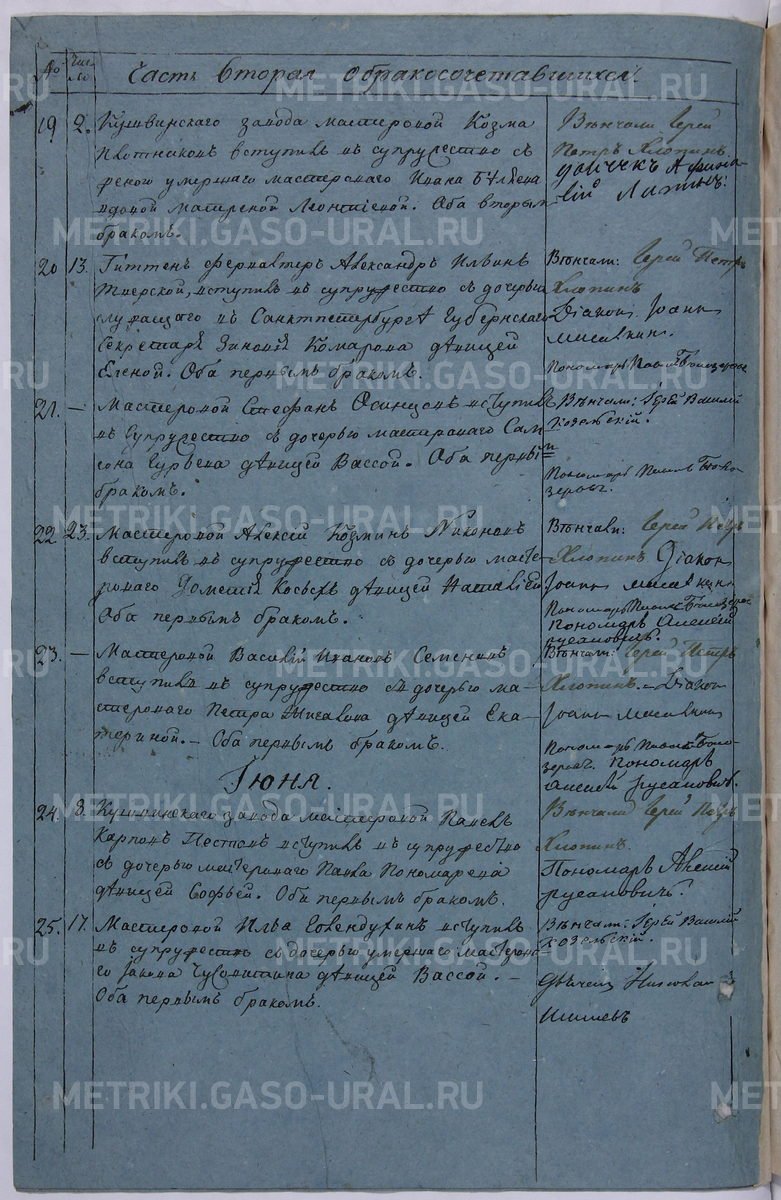 № Число
Часть вторая о бракосочетавшихся.
19 2. Кушвинскаго завода мастеровой Козма
Плотников вступив в супружество с
умершаго мастероваго Ивана Беляева
вдовой Матреной Леонтиевой. Оба вторым
браком.
Венчали: Иерей
Петр Хлопин.
20 13. Гиттен фервалтер Александр Ильин
Тверской, вступив в супружество с дочерью
служащаго в Санктпетербурге Губернскаго
Секретаря Зиновия Комарова девицей
Еленой. Оба первым браком.
Венчали: Иерей Петр
Хлопин
Диакон Иоанн
Мисилкин.
Пономарь Павел Белозеров
21. — Мастеровой Стефан Осинцов вступив
в супружество с дочерью мастероваго Сам
сона Гурьева девицей Вассой. Оба первым
браком.
Венчали: Иерей Василий
Козельский.
Пономарь Павел Бело-
зеров.
22 23. Мастеровой Алексий Козмин Никонов
вступив в супружество с дочерью масте-
роваго Дометия девицей Наталией
Оба первым браком.
Венчали: Иерей Петр
Хлопин Диакон
Иоанн Мисилкин
Пономарь Павел Белозеров
Пономарь Алексей
Русанович.
23. — Мастеровой Василий Иванов Семенов
вступив в супружество с дочерью ма-
стероваго Петра девицей Ека-
териной. — Оба первым браком.
Венчали: Иерей Петр
Хлопин. — Диакон
Иоанн Мисилкин
Пономарь Павел Бело-
зеров. Пономарь
Алексей Русанович.
Июня.
24. 8. Кушвинскаго завода мастеровой Павел
Карпов Пестов вступив в супружество
с дочерью мастероваго Павла Пономарева
девицей Софьей. Оба первым браком.
Венчали Иерей Петр
Хлопин.
Пономарь Алексей
Русанович.
25. 17. Мастеровой Илья вступив
в супружество с дочерью умершаго мастерова
го Иакова девицей Вассой. —
Оба первым браком.
Венчали: Иерей Василий
Козельский.
METRIKI.GASO-URAL.RU